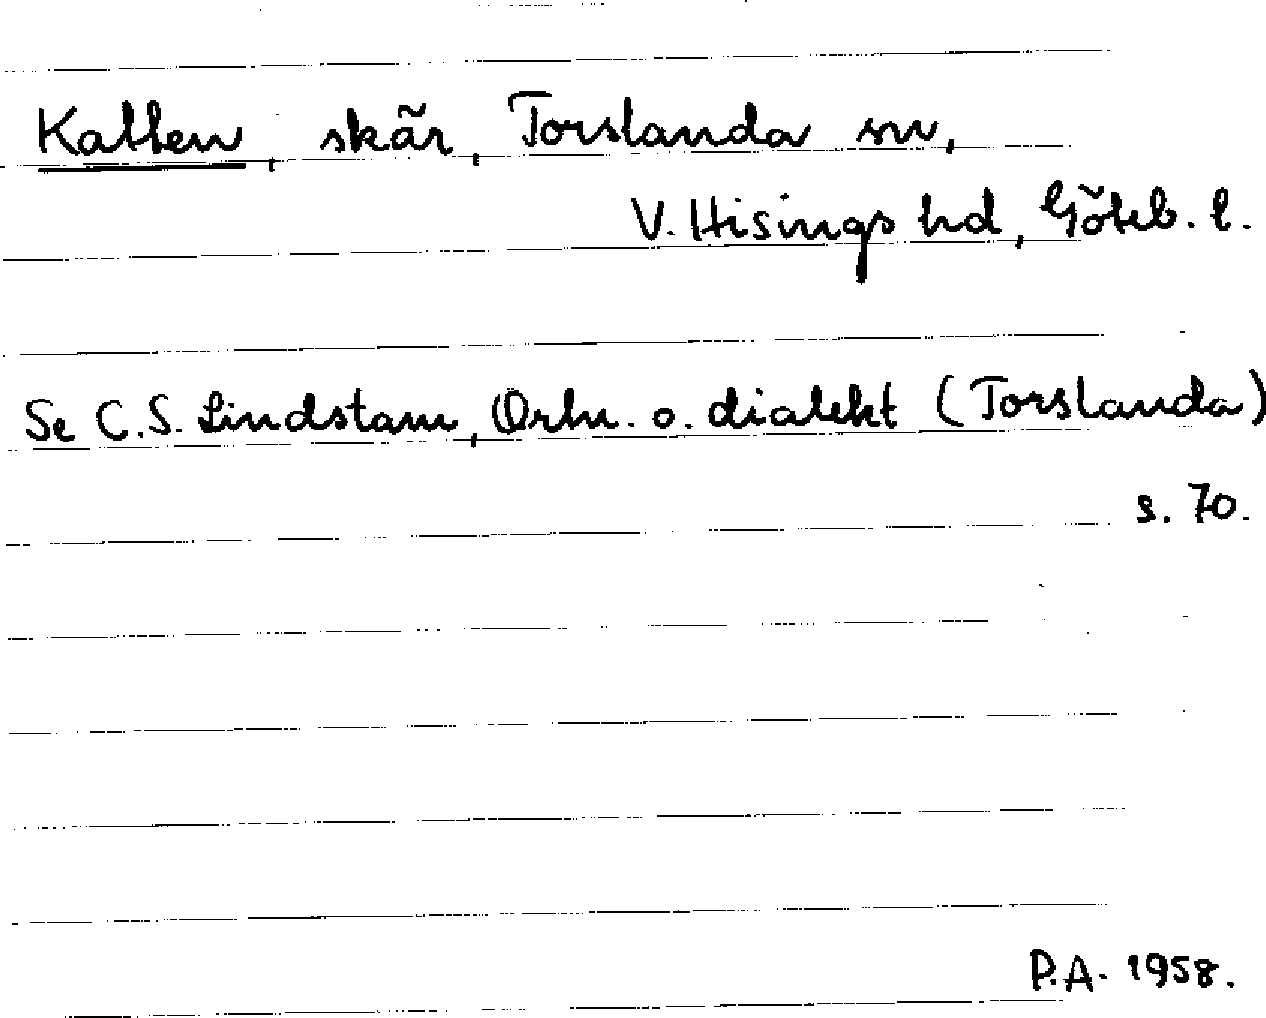 Katten, skär, Torslanda sn,
V. Hisings hd, Göteb. l.
Se C.S. Lindstam, Ortn. o. dialekt (Torslanda)
s. 70.
P.A. 1958.